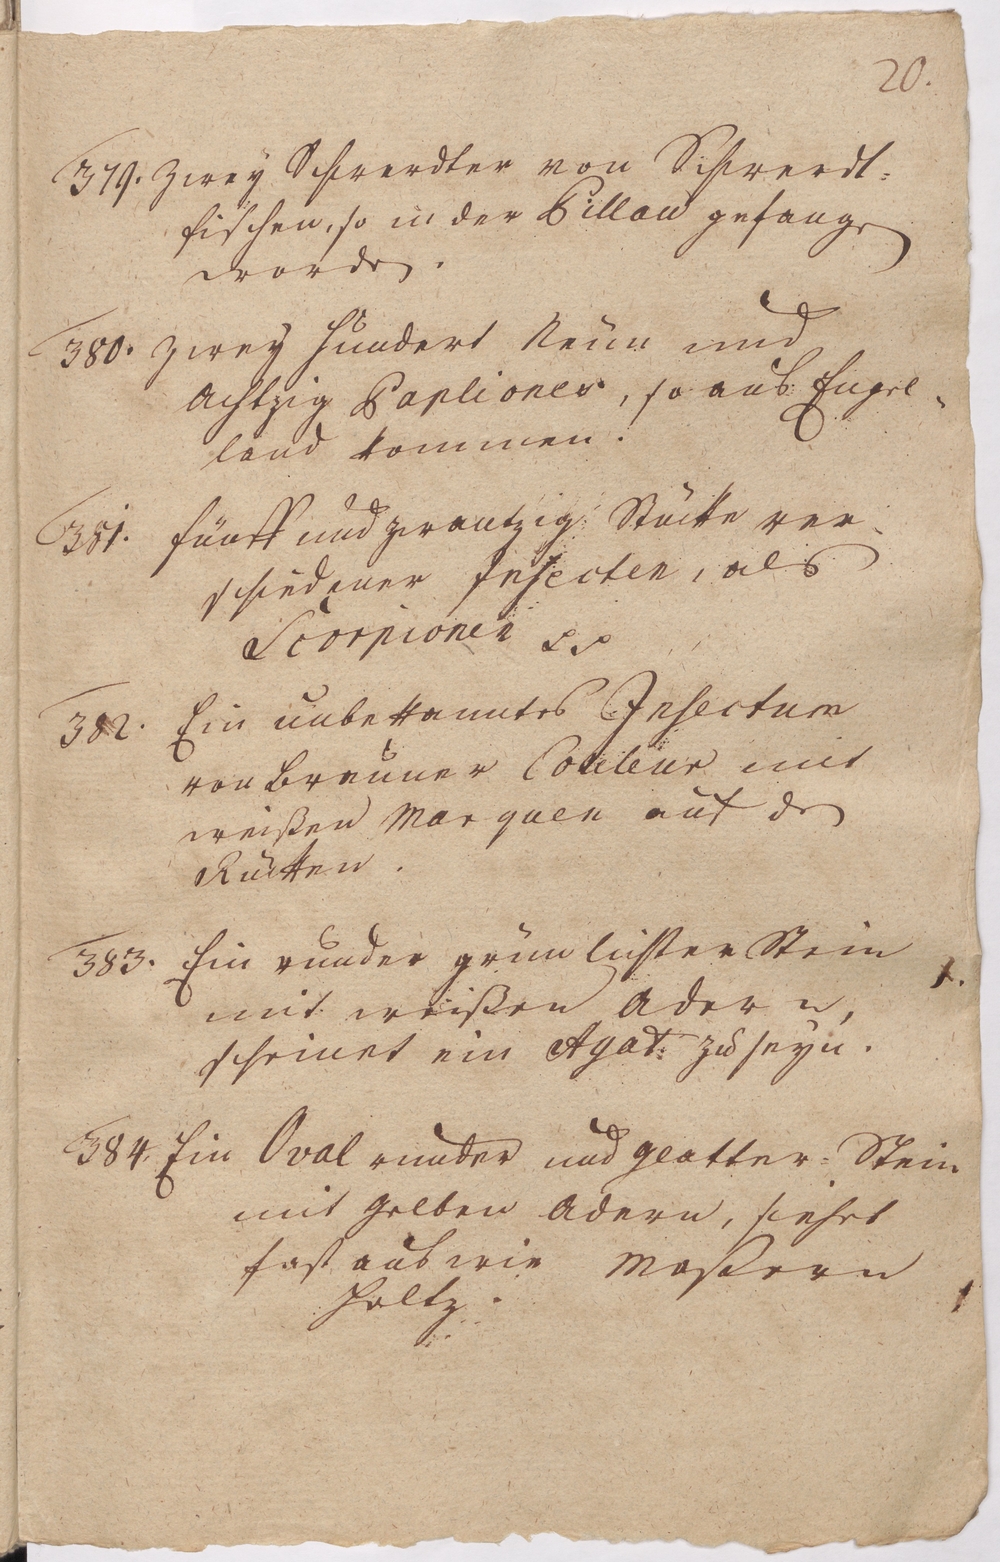 20.
379. Zwey Schwerdter von Schwerdt-
fischen, so in der Pillau gefangen
worden.
380. Zwey Hundert Neün und
Achtzig Paplioner, so aus Engel-
land kommen.
381. fünff und zwantzig Stücke ver-
schiedener Insecten, als
Scorpionen pp
382. Ein unbekanntes Insectum
von Brauner Couleur mit
weißen Marquen auf den
Rücken.
383. Ein runder grünlichter Stein
mit weißen Adern, 1.
scheinet ein Agat zu seyn.
384. Ein Oval runder und glatter Stein
mit gelben Adern, siehet
fast aus wie Maßern
Holtz. 1